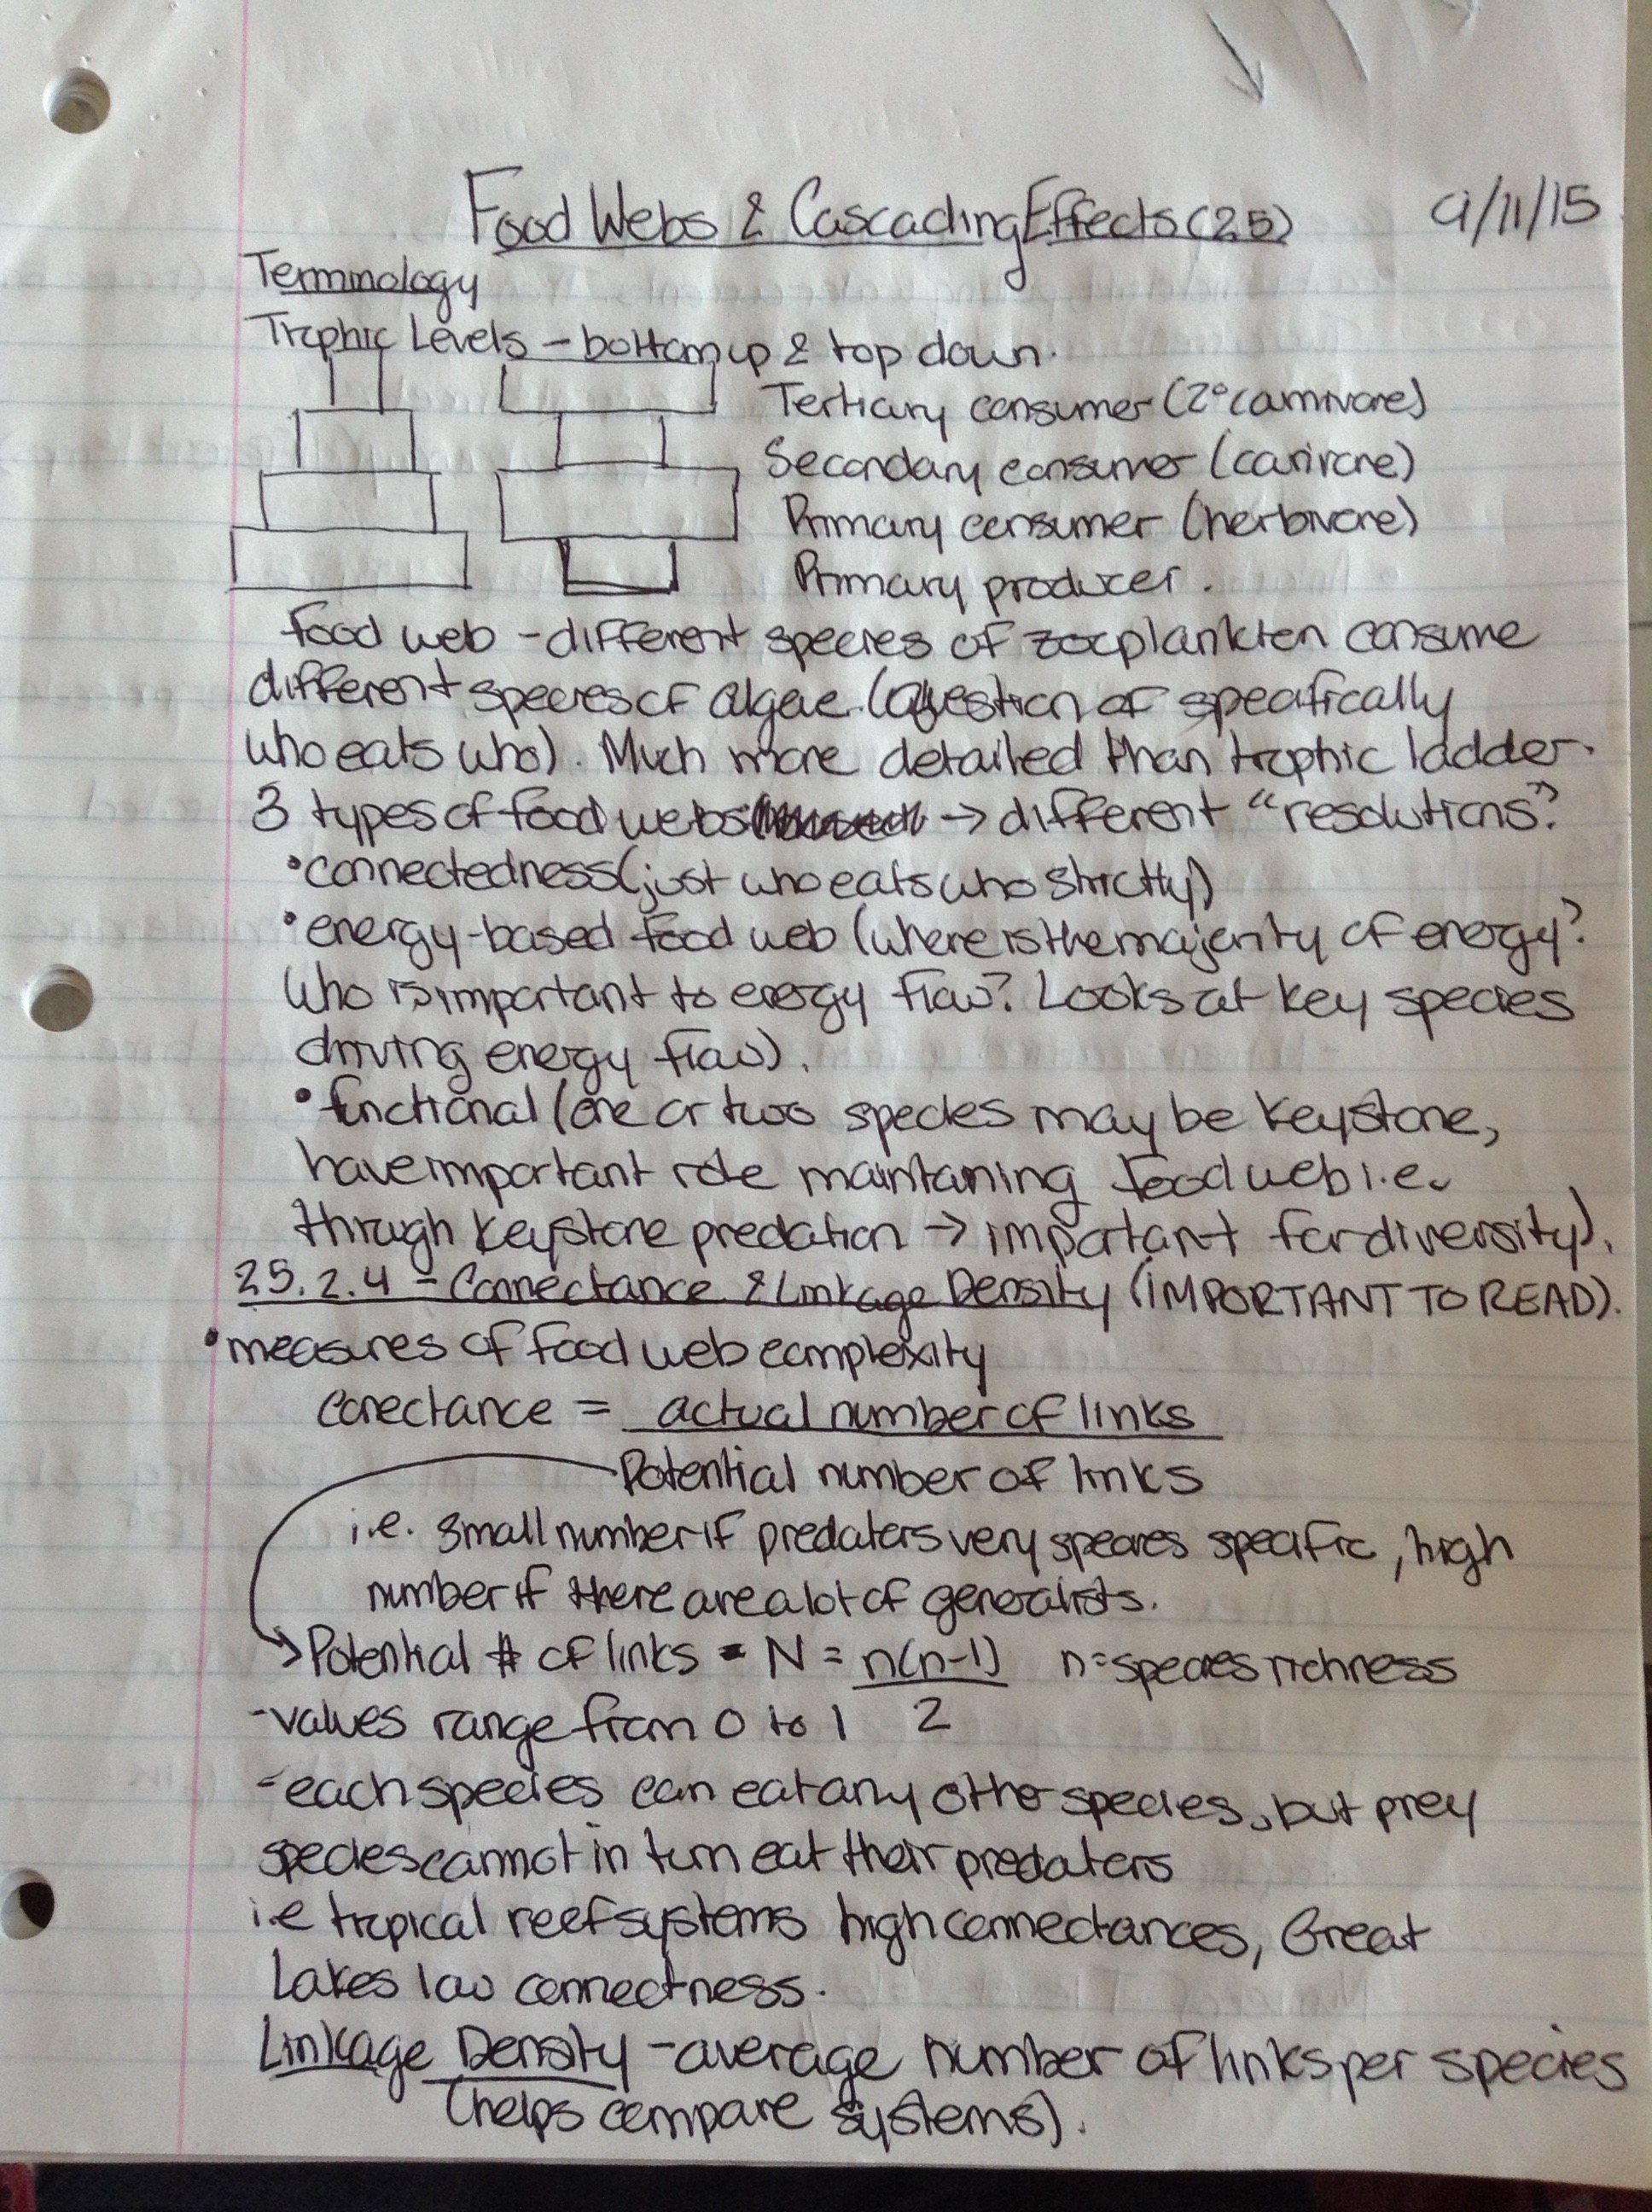 Food Webs & Cascading Effects (25) 9/11/15
Terminology
Trophic Levels - bottom up & top down.
Tertiary consumer (2° carnivore)
Secondary consumer (carivore)
Primary consumer (herbivore)
Primary producer.
food web - different species of zooplankton consume
different species of algae. (Question of specifically
who eats who). Much more detailed than trophic ladder.
3 types of food webs → different "resolutions".
• connectedness (just who eats who strictly)
• energy-based food web (where is the majority of energy?
Who is important to energy flow? Looks at key species
driving energy flow).
• functional (one or two species may be keystone,
have important role maintaining food web i.e.
through keystone predation → important for diversity).
25.2.4 - Connectance & Linkage Density (IMPORTANT TO READ).
• measures of food web complexity
Conectance = actual number of links
Potential number of links
i.e. small number if predators very species specific, high
number if there are a lot of generalists.
→ Potential # of links = N = n(n-1) n = species richness
- values range from 0 to 1 2
- each species can eat any other species, but prey
species cannot in turn eat their predators
i.e tropical reef systems high connectances, Great
Lakes low connectness.
Linkage Density - average number of links per species
(helps compare systems).